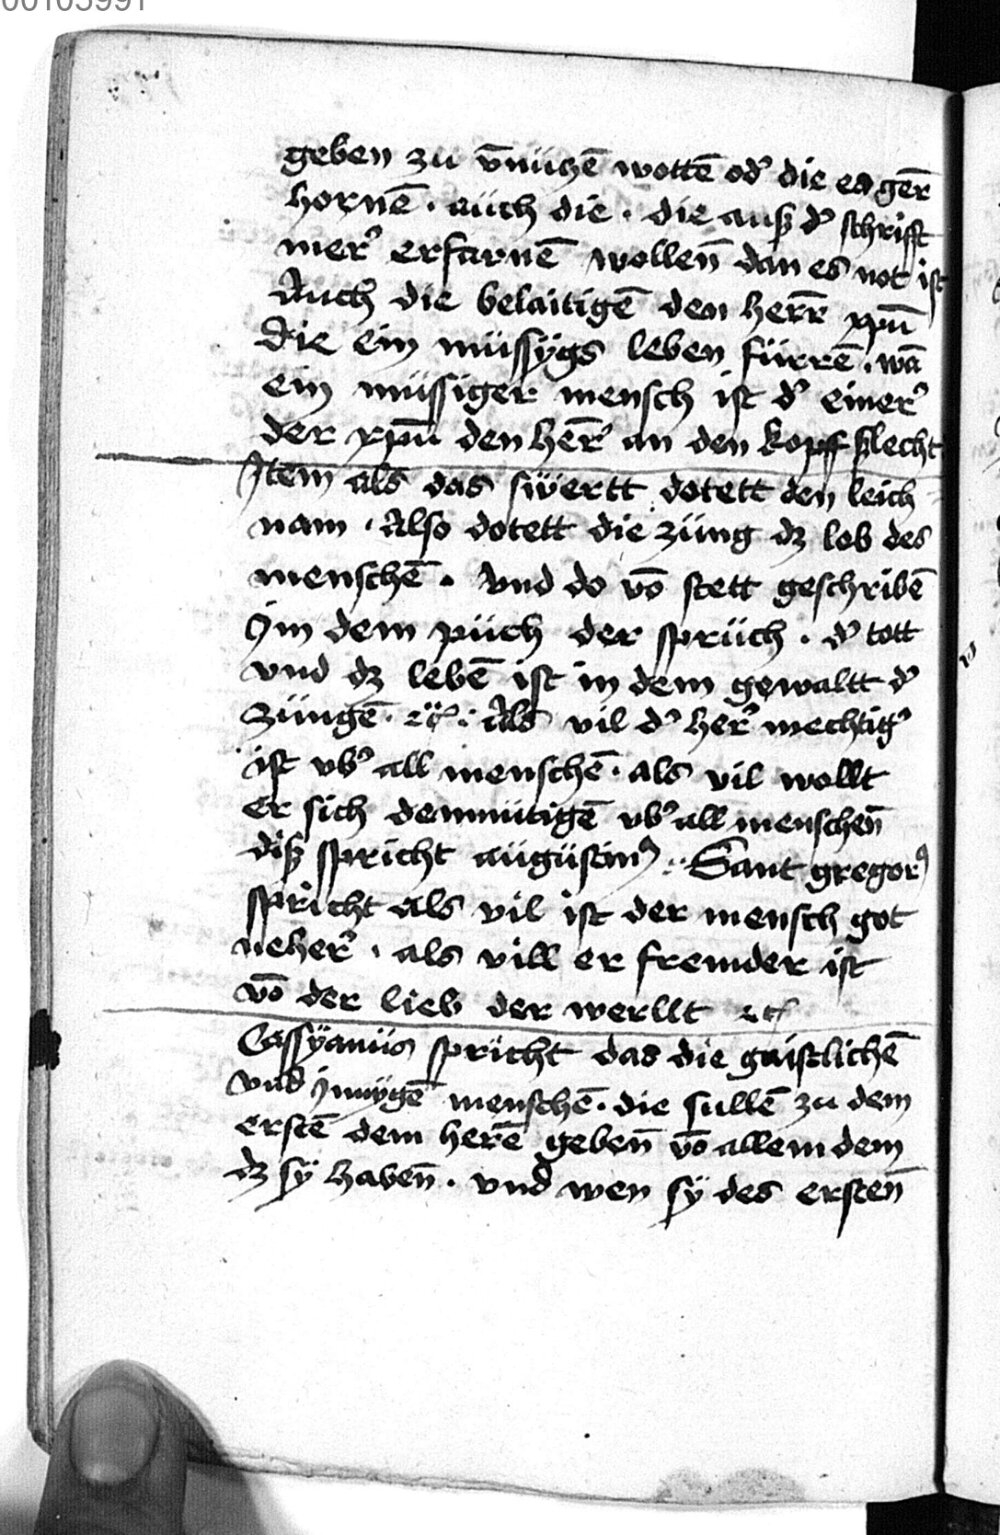 00105991
geben zu v̄nüczē wottē od᷑ die es gēr
hornē . aüch die . die auß d᷑ schrifft
mer᷑ erfarnē wollen̄ dan es not ist
Auch die belaitigē den herr̄ xpū
die ein müssÿgs leben fürrē . wā
ein müssiger mensch ist d᷑ einer᷑
der xpū den hēr᷑ an den kopff slecht
Item als das swertt dotett den leich
nam . Also dotett die züng dz lob des
menschē . vnd do vō stett geschribē
Jm dem püch der sprüch . d᷑ tott
vnd dz lebē ist in dem gewaltt d᷑
züngē . ꝛc̄ . Als vil d᷑ her᷑ mechtig᷑
ist vb᷑ all menschē . als vil wollt
er sich demmütigē vb᷑ all menschen̄
diß spricht aügüstinꝰ . Sant gregorꝰ
spricht als vil ist der mensch got
neher᷑ . als vill er fremder ist
vō der lieb der werllt ꝛc
Cassÿanüs spricht das die gaistlichē
vnd jnnÿgē menschē . die sullē zu dem
erstē dem herē geben̄ vō allem dem
dz sÿ haben̄ . vnd wen sÿ des ersten̄